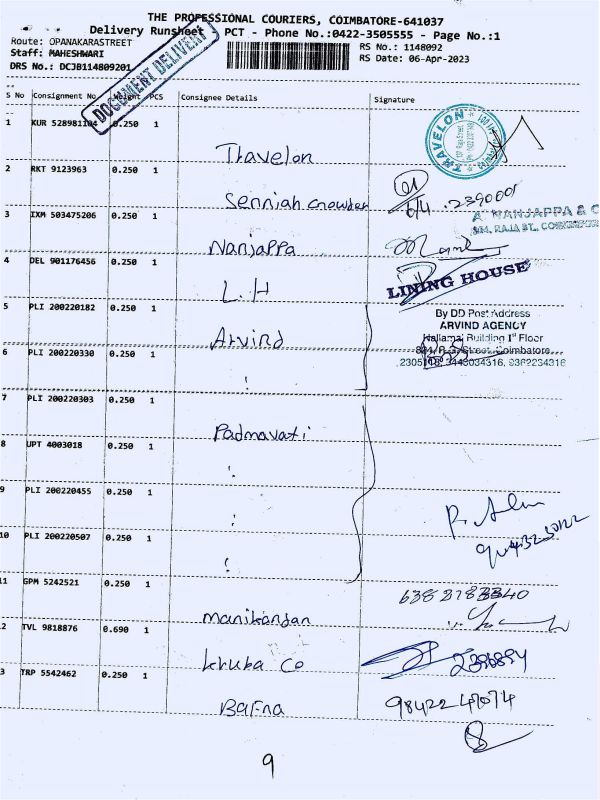 THE PROFESSIONAL COURIERS, COIMBATORE-641037
Delivery Runsheet PCT - Phone No.:0422-3505555 - Page No.:1
Route: OPANAKARASTREET
RS No.: 1148092
Staff: MAHESHWARI
RS Date: 06-Apr-2023
DRS No.: DCJB114809201
DOCUMENT DELIVERY
S No Consignment No Weight PCS Consignee Details Signature
1 KUR 528981104 0.250 1 Travelon
TRAVELON
2 RKT 9123963 0.250 1 Senniah Crowder
6/4
3 IXM 503475206 0.250 1 Nanjappa
A. NANJAPPA & C
4 DEL 901176456 0.250 1 L.H
LINING HOUSE
5 PLI 200220182 0.250 1 Arvind
By DD Post Address
ARVIND AGENCY
Nallamai Building 1st Floor
Street, Coimbatore
6 PLI 200220330 0.250 1
7 PLI 200220303 0.250 1 Padmavati
8 UPT 4003018 0.250 1
9 PLI 200220455 0.250 1
10 PLI 200220507 0.250 1
11 GPM 5242521 0.250 1 Manikandan
2 TVL 9818876 0.690 1 Kruba Co
3 TRP 5542462 0.250 1 Bafna
9